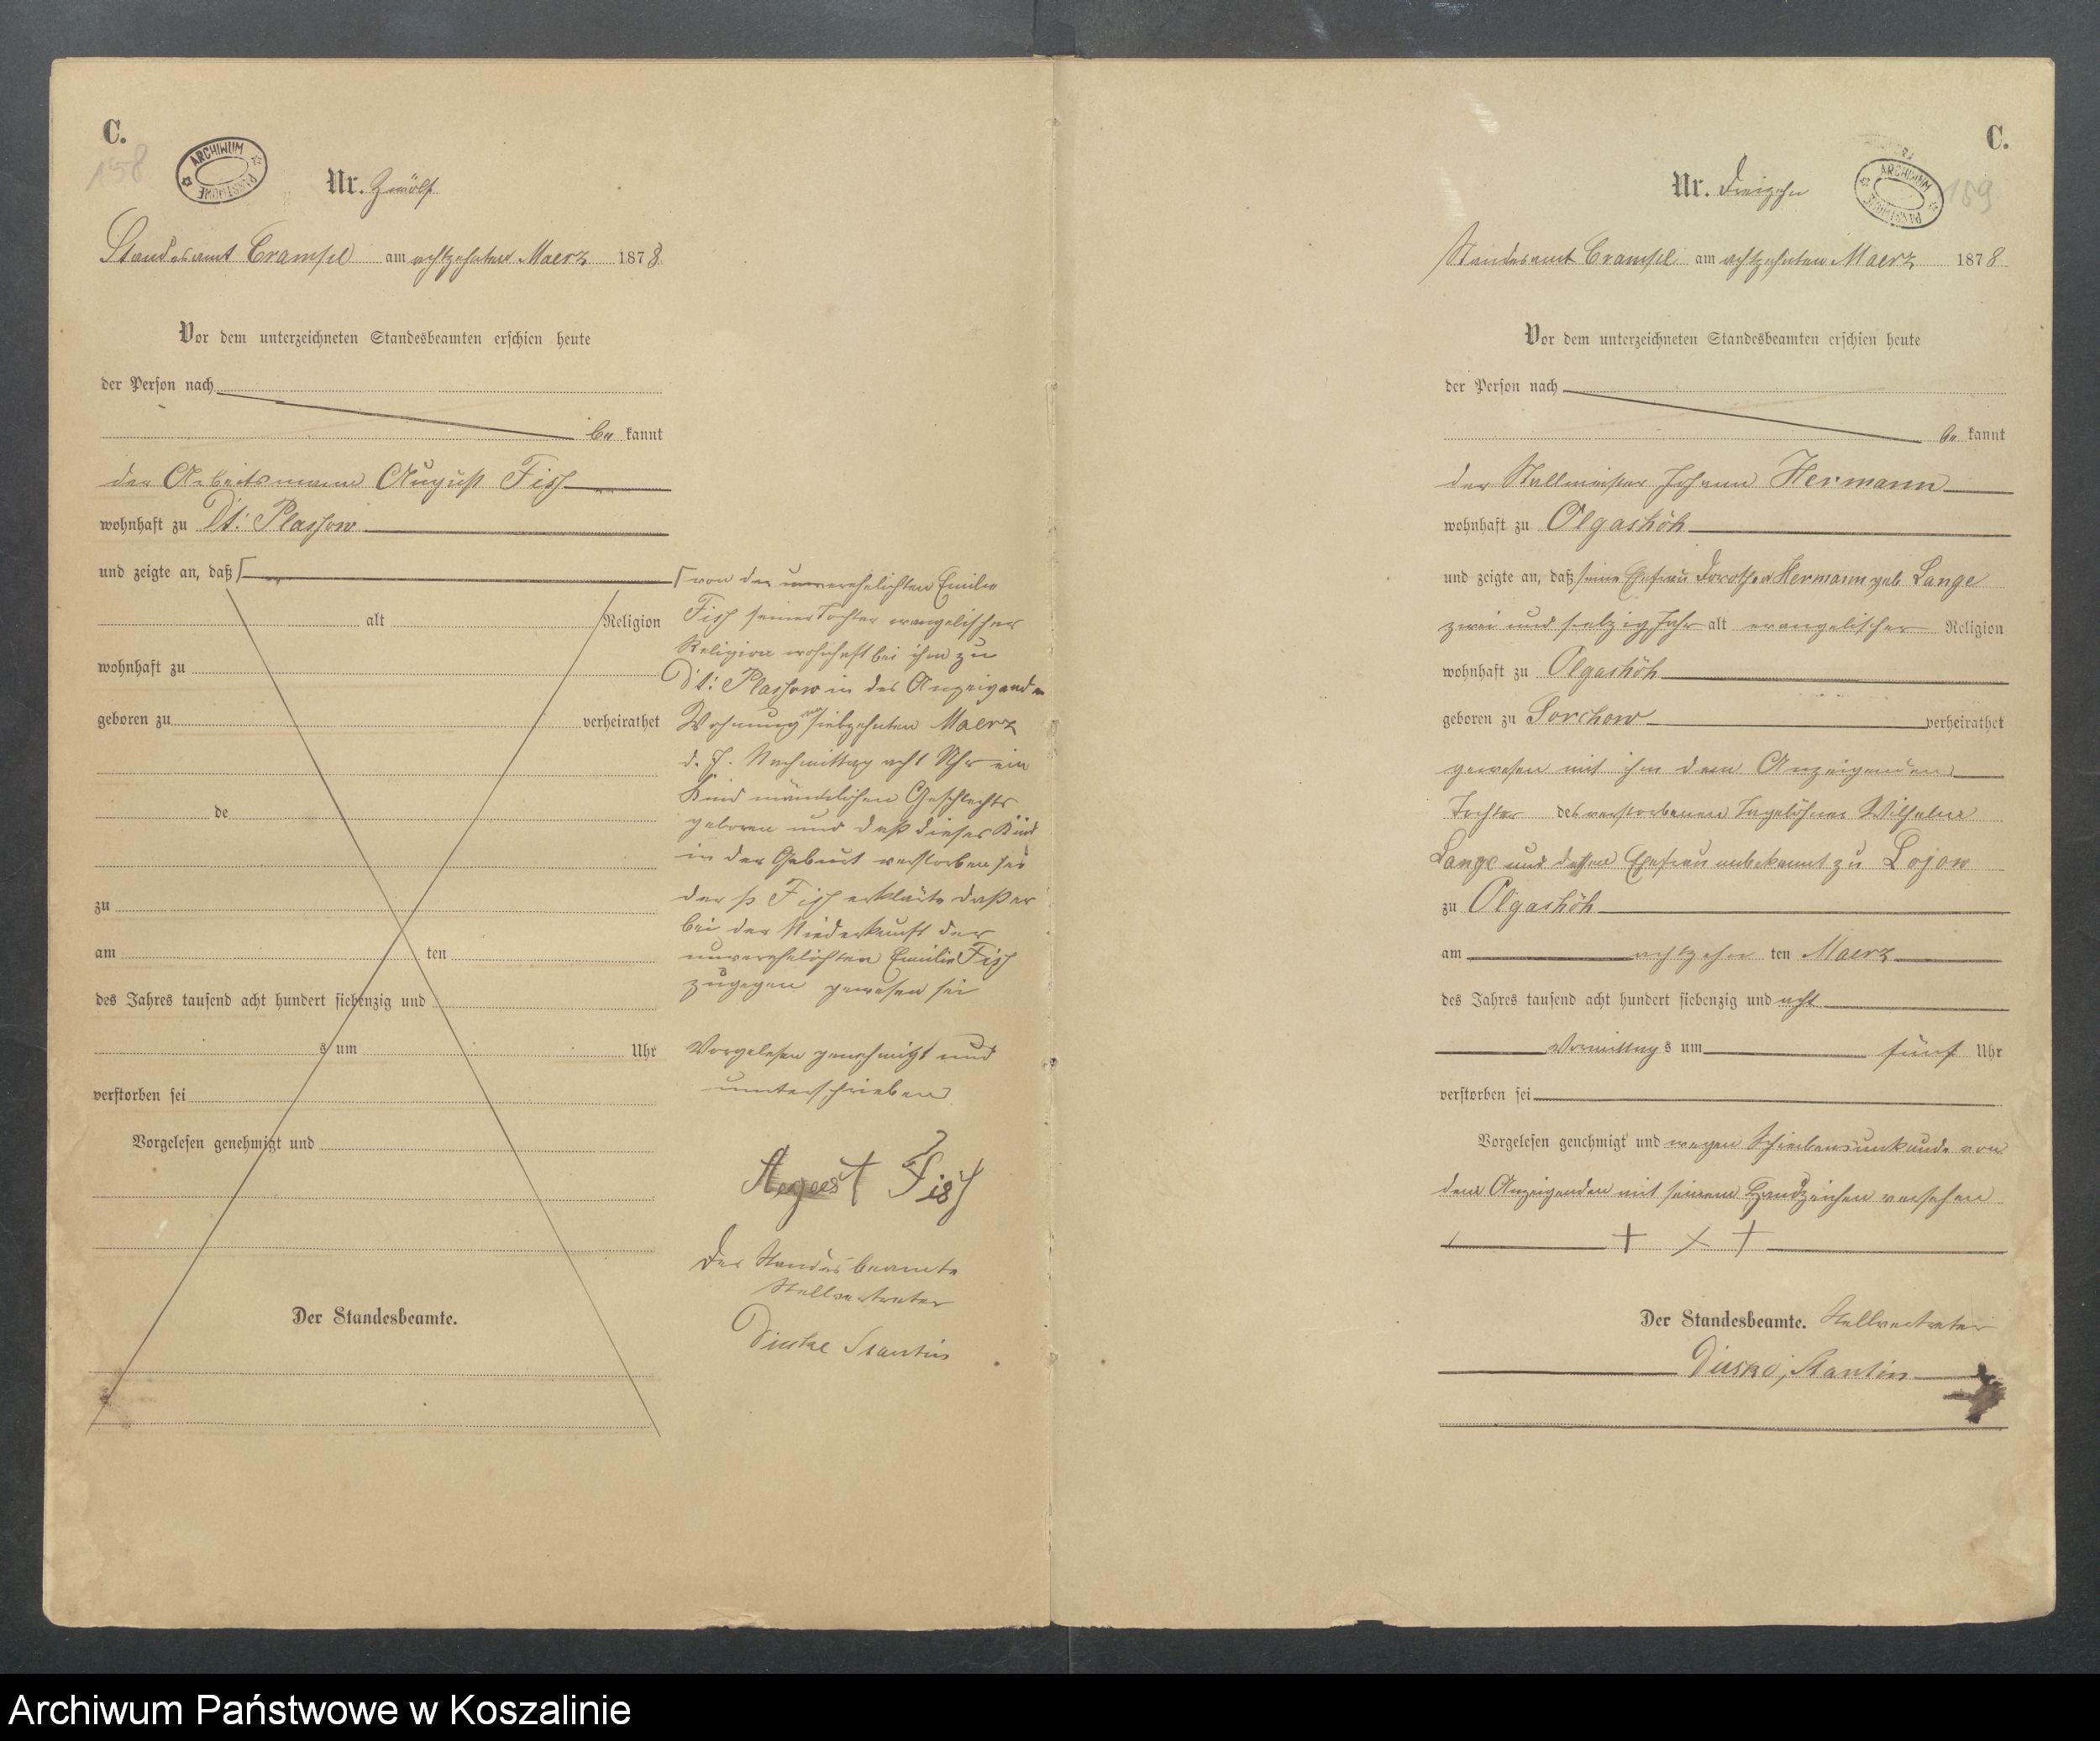 C.
158
ARCHIWUM PAŃSTWOWE
Nr. Zwölf
Standesamt Crampe am achtzehnten Maerz 1878
Vor dem unterzeichneten Standesbeamten erschien heute
der Person nach
be kannt
der Arbeitsmann August Fisch
wohnhaft zu Dt: Plassow
und zeigte an, daß
alt Religion
wohnhaft zu
geboren zu verheirathet
de
zu
am ten
des Jahres tausend acht hundert siebenzig und
s um Uhr
verstorben sei
Vorgelesen genehmigt und
Der Standesbeamte.
von der unverehelichten Emilie
Fisch seiner Tochter evangelischer
Religion wohnhaft bei ihm zu
Dt: Plassow in des Anzeigenden
Wohnung am siebzehnten Maerz
d. J. Nachmittag acht Uhr ein
Kind männlichen Geschlechts
geboren und daß dieses Kind
in der Geburt verstorben sei
der Fisch erklärte daß er
bei der Niederkunft der
unverehelichten Emilie Fisch
zugegen gewesen sei
Vorgelesen genehmigt und
unterschrieben
August Fisch
Der Standesbeamte
Stellvertreter
C.
159
ARCHIWUM PAŃSTWOWE
Nr. Dreizehn
Standesamt Crampe am achtzehnten Maerz 1878
Vor dem unterzeichneten Standesbeamten erschien heute
der Person nach
be kannt
der Johann Hermann
wohnhaft zu Olgashöh
und zeigte an, daß seine Ehefrau Dorothea Hermann geb Lange
zwei und siebzig Jahr alt evangelischer Religion
wohnhaft zu Olgashöh
geboren zu Sorchow verheirathet
gewesen mit ihm dem Anzeigenden
Tochter des verstorbenen Tagelöhner Wilhelm
Lange und dessen Ehefrau unbekannt zu Lojow
zu Olgashöh
am achtzehn ten Maerz
des Jahres tausend acht hundert siebenzig und acht
Vormittag s um fünf Uhr
verstorben sei
Vorgelesen genehmigt und wegen Schreibensunkunde von
dem Anzeigenden mit seinem Handzeichen versehen
+ x +
Der Standesbeamte. Stellvertreter
Archiwum Państwowe w Koszalinie